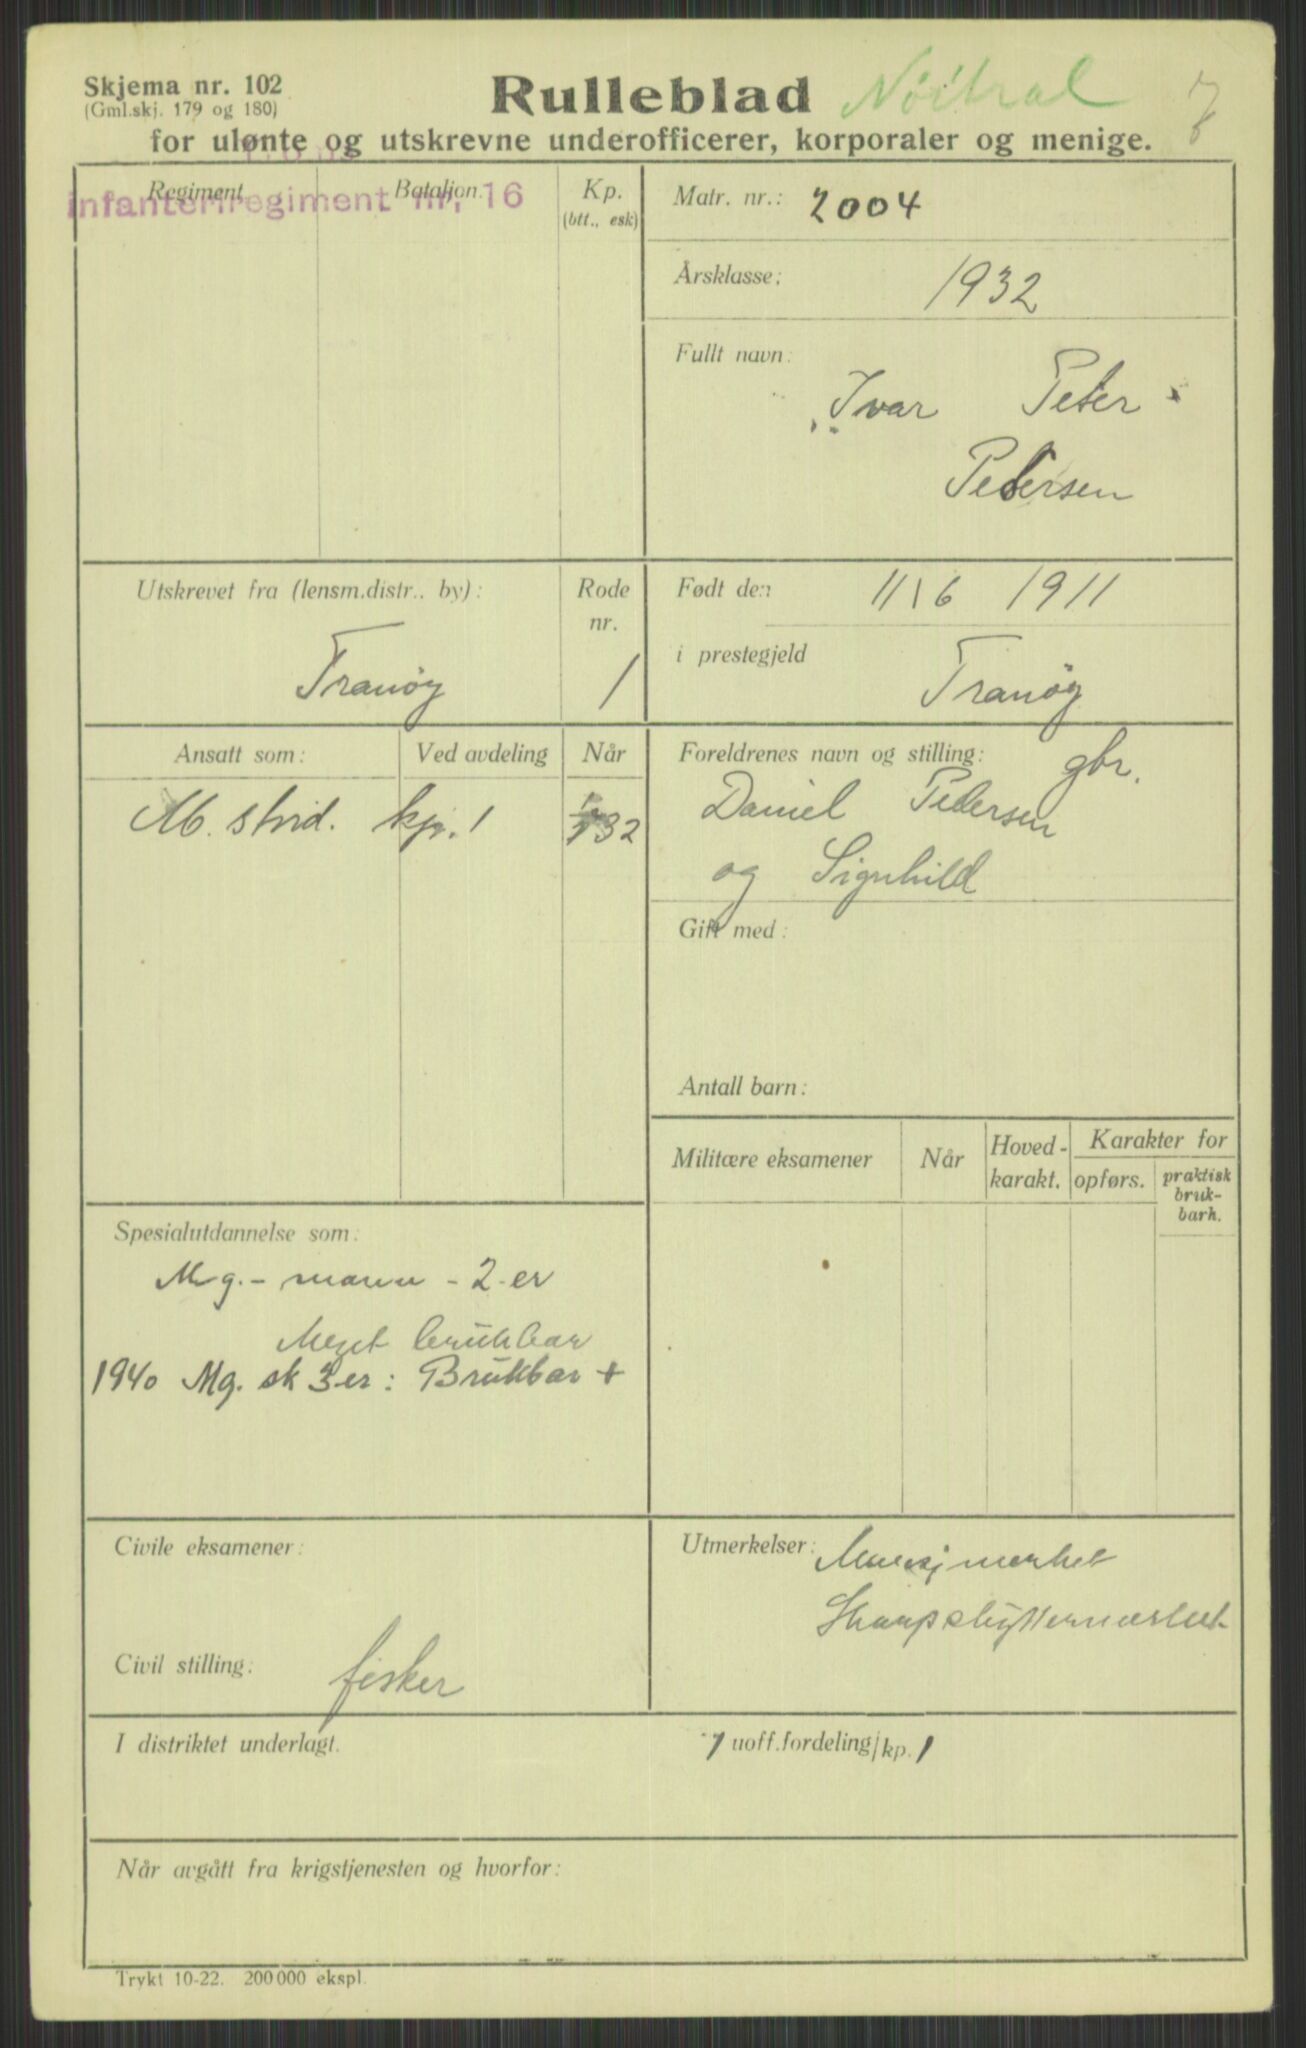 Skjema nr. 102
(Gml.skj. 179 og 180)
Rulleblad Nöitral
for ulønte og utskrevne underofficerer, korporaler og menige.
Regiment. Bataljon. Kp.
(btt., esk)
infanteriregiment nr. 16
Matr. nr.: 2004
Årsklasse: 1932
Fullt navn:
Ivar Peter
Pedersen
Utskrevet fra (lensm.distr.. by):
Tranöy
Rode
nr.
1
Født den 11/6 1911
i prestegjeld
Tranöy
Ansatt som: Ved avdeling Når
M. strid. kp. 1 32
Foreldrenes navn og stilling: gbr.
Daniel Pedersen
og Signhild
Gift med:
Antall barn:
Militære eksamener Når Hoved-
karakt. Karakter for
opførs. praktisk
bruk-
barh.
Spesialutdannelse som:
Mg. - mann - 2-er
Meget brukbar
1940 Mg. sk 3-er: Brukbar +
Civile eksamener:
Civil stilling: fisker
Utmerkelser: Marsjmerket
Skarpskyttermerket
I distriktet underlagt.
1 uoff.fordeling/kp. 1
Når avgått fra krigstjenesten og hvorfor:
Trykt 10-22. 200 000 ekspl.